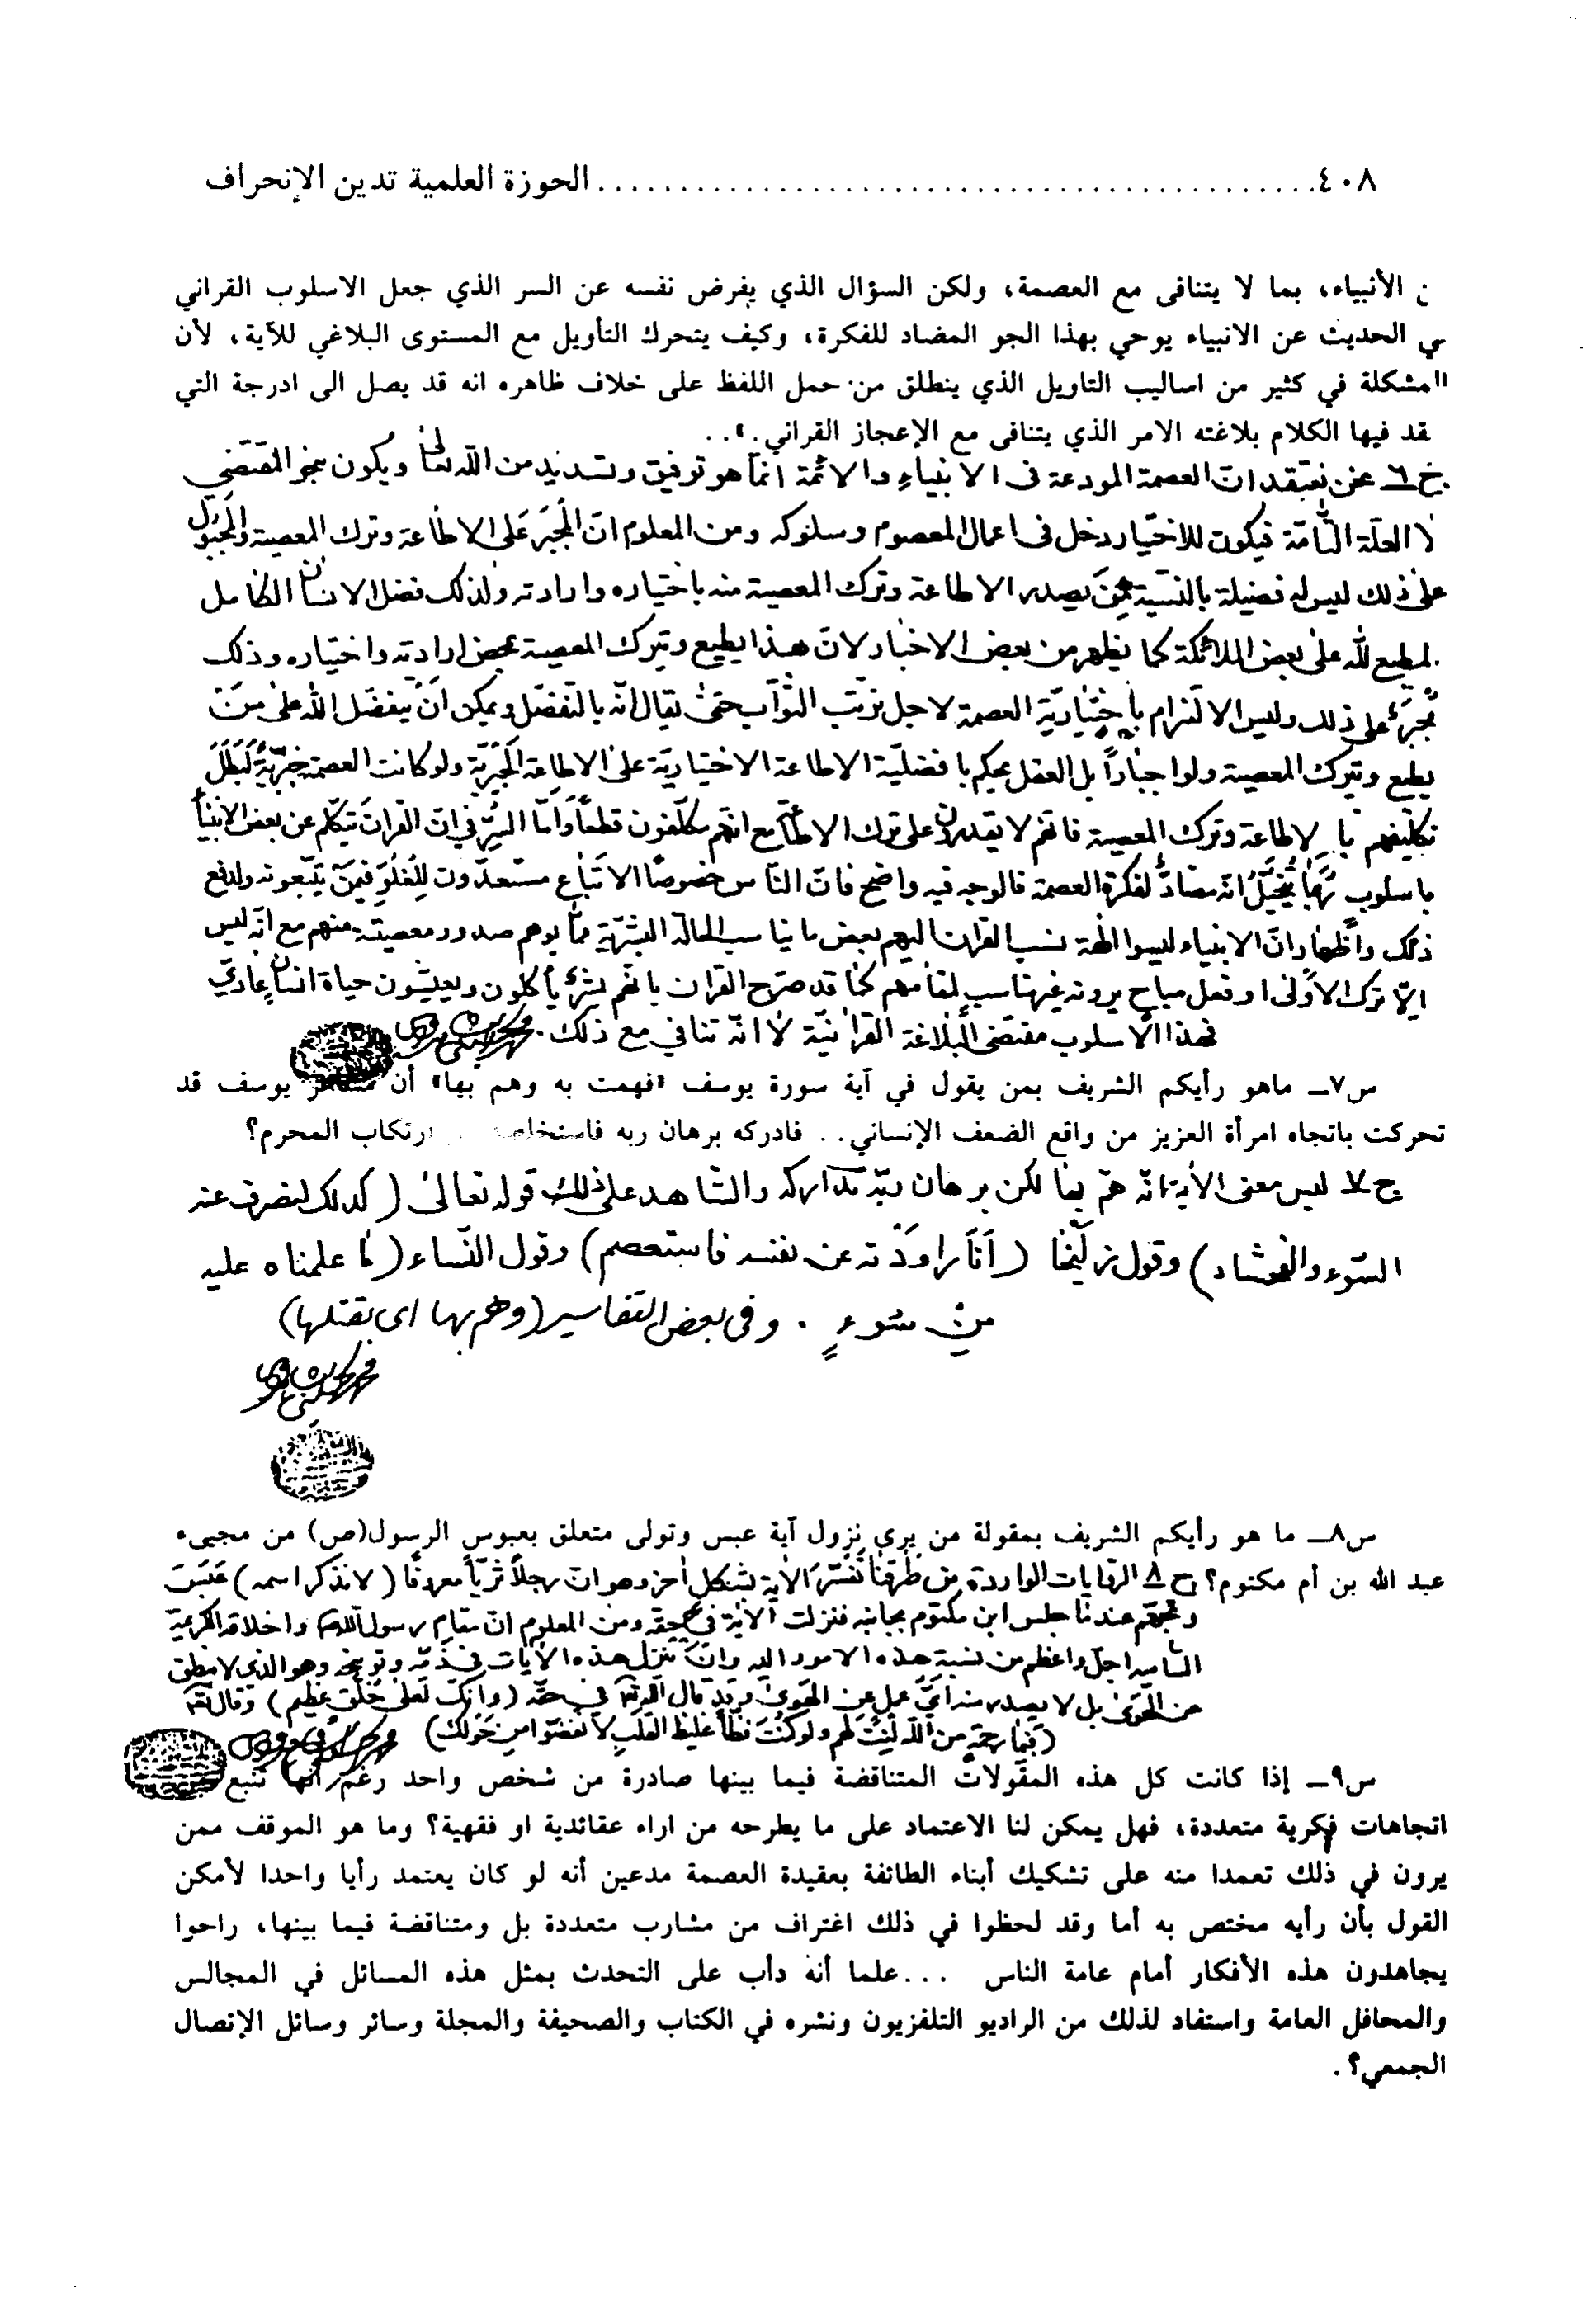 ٤٠٨ ........................................ الحوزة العلمية تدين الإنحراف
الأنبياء، بما لا يتنافى مع العصمة، ولكن السؤال الذي يفرض نفسه عن السر الذي جعل الاسلوب القراني
ي الحديث عن الانبياء يوحي بهذا الجو المضاد للفكرة، وكيف يتحرك التأويل مع المستوى البلاغي للآية، لأن
المشكلة في كثير من اساليب التاويل الذي ينطلق من حمل اللفظ على خلاف ظاهره انه قد يصل الى ادرجة التي
يقد فيها الكلام بلاغته الامر الذي يتنافى مع الإعجاز القراني.»..
ج ٦ نحن نعتقد ان العصمة المودعة فى الانبياء والائمة انما هو توفيق وتسديد من الله تعالى ويكون بنحو المقتضي
لا العلّة التّامّة فيكون للاختيار دخل فى اعمال المعصوم وسلوكه ومن المعلوم انّ المُجبَر عَلى الاطاعة وترك المعصية والمجبول
على ذلك ليس له فضيلة بالنسبة بمن يصدر الاطاعة وترك المعصية منه باختياره وارادته ولذلك فضل الانسان الكامل
المطيع لله على بعض الملائكة كما يظهر من بعض الاخبار لانّ هذا يطيع ويترك المعصية بمحض ارادته واختياره وذلك
مُجبَر على ذلك وليس الالتزام باختياريّة العصمة لاجل ترتّب الثّواب حتّى يقال انّه بالتفضّل ويمكن انْ يتفضّل الله على مَنْ
يطيع ويترك المعصية ولو اجباراً بل العقل يحكم بافضليّة الاطاعة الاختياريّة على الاطاعة الجبريّة ولو كانت العصمة جبريّةً لبَطَلَ
تكليفهم بالاطاعة وترك المعصية فانّهم لا يقدرون على ترك الاطاعة مع انّهم مكلّفون قطعاً وأمّا السِرّ في انّ القرآن يتكلّم عن بعض الانبياء
باسلوب رُبَما يُتخَيَّلُ انّه مضادٌّ لفكرة العصمة فالوجه فيه واضح فانّ النّاس خصوصًا الاتباع مستعدّون لِلْغُلُوّ فيمَنْ يتّبعونه ولدفع
ذلك واظهار انّ الانبياء ليسوا الهة نسب القرآن اليهم بعض ما يناسب الحالة البشريّة ممّا يوهم صدور معصيته منهم مع انّه ليس
الاّ ترك الاَولى او فعل مباح يرونه غير مناسب لمقامهم كما قد صرّح القرآن بانّهم بشرٌ يأكلون ويعيشون حياة انسانٍ عاديّ
فهذا الاسلوب مقتضى البلاغة القرآنيّة لا انّه تنافي مع ذلك.
س٧ـ ماهو رأيكم الشريف بمن يقول في آية سورة يوسف «فهمت به وهم بها» أن يوسف قد
تحركت باتجاه امرأة العزيز من واقع الضعف الإنساني.. فادركه برهان ربه فاستخلصه ارتكاب المحرم؟
ج ٧ ليس معنى الآية انّه همّ بها لكن برهان ربّه تداركه والشاهد على ذلك قوله تعالى (كذلك لنصرف عنه
السّوء والفحشاء) وقول زليخا (أنَا راودْته عن نفسه فاستعصم) وقول النّساء (ما علمناه عليه
منْ سُوءٍ . وفى بعض التفاسير (وهمّ بها اى بقتلها)
س٨ـ ما هو رأيكم الشريف بمقولة من يرى نزول آية عبس وتولى متعلق بعبوس الرسول(ص) من مجيىء
عبد الله بن أم مكتوم؟ ج ٨ الروايات الواردة من طرقنا تُفَسّر الآية بشكل آخر وهو ان رجلاً ثريّاً معروفًا (لا نذكر اسمه) عَبَسَ
عندما جلس ابن مكتوم بجانبه فنزلت الآية في حقه ومن المعلوم انّ مقام رسول الله واخلاقه الكريمة
السّامية اجلّ واعظم من نسبة هذه الامور اليه وانْ تنزل هذه الآيات في ذمّه وتوبيخه وهو الذى لا ينطق
عن الهوى بل لا يصدر منه ايّ عمل عن الهوى وقد قال الله في حقّه (وانك لَعَلى خُلُق عظيم) وقال
(فبِمَا رحمةٍ من الله لِنْتَ لهم ولو كُنْتَ فظّاً غليظ القلب لانفضّوا من حَوْلِك)
س٩ـ إذا كانت كل هذه المقولات المتناقضة فيما بينها صادرة من شخص واحد رغم أنها تتبع
اتجاهات فكرية متعددة، فهل يمكن لنا الاعتماد على ما يطرحه من اراء عقائدية او فقهية؟ وما هو الموقف ممن
يرون في ذلك تعمدا منه على تشكيك أبناء الطائفة بعقيدة العصمة مدعين أنه لو كان يعتمد رأيا واحدا لأمكن
القول بأن رأيه مختص به أما وقد لحظوا في ذلك اغتراف من مشارب متعددة بل ومتناقضة فيما بينها، راحوا
يجاهدون هذه الأفكار أمام عامة الناس ...علما أنه دأب على التحدث بمثل هذه المسائل في المجالس
والمحافل العامة واستفاد لذلك من الراديو التلفزيون ونشره في الكتاب والصحيفة والمجلة وسائر وسائل الإتصال
الجمعي؟.